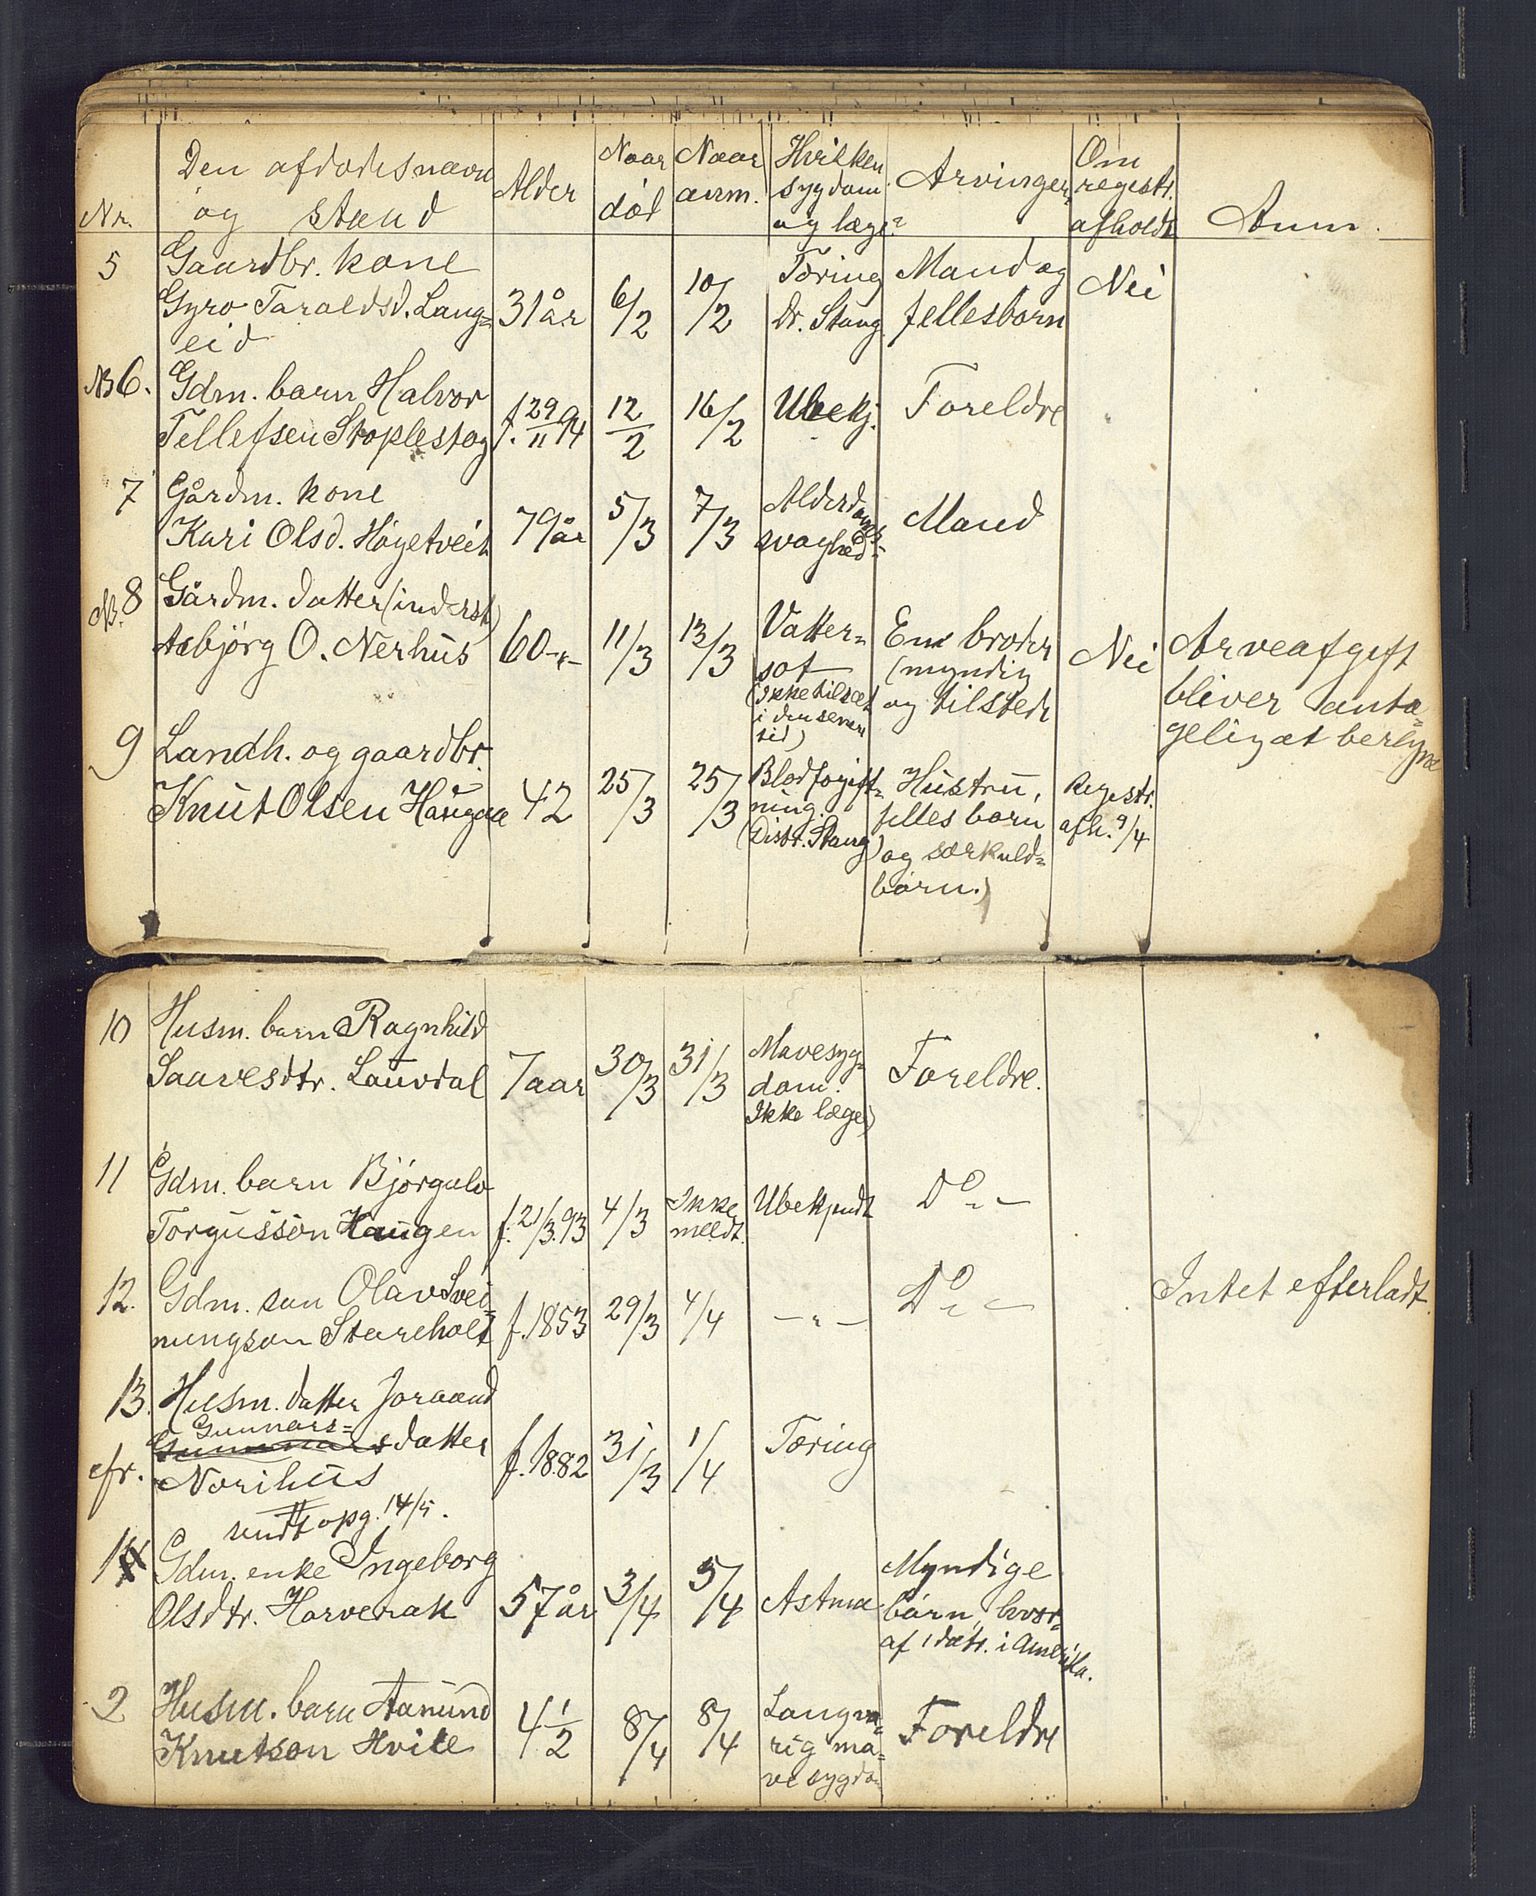 Nr. Den afdødes navn og stand Alder Naar død Naar anm. Hvilken sygdom og læge? Arvinger Om registr. afholdt Anm.
5 Gaardbr. kone
Gyro Taraldsd. Lang=
eid 31 år 6/2 10/2 Tæring
Dr. Stang Mand og
fellesbørn Nei
NB 6. Gdm. barn Halvor
Tellefsen Stoplestøg f. 29/11 94 12/2 16/2 Ubekj. Foreldre
7 Gårdm. kone
Kari Olsd. Høgetveit 79 år 5/3 7/3 Alderdoms=
svaghed Mand
NB. 8 Gårdm. datter (inderst)
Asbjørg O. Nerhus 60 -"- 11/3 13/3 Vatter=
sot
(ikke tilset
i den senere
tid) En broder
(myndig
og tilstede Nei Arveafgift
bliver anta=
geligst beregne
9 Landh. og gaardbr.
Knut Olsen Haugaa 42 25/3 25/3 Blodfogift=
ning.
(Distr. Stang) Hustru,
felles børn
og særkuld=
børn.) Registr.
afh. 9/4
10 Husm. barn Ragnhild
Saavesdtr. Lauvdal 7 aar 30/3 31/3 Mavesyg=
dom.
Ikke læge) Foreldre.
11 Gdm. barn Bjørgulv
Torgusson Haugen f. 21/3. 93 4/3 Ikke
meldt. Ubekjendt Do -"-
12. Gdm. søn Olav Svei=
nungson Stareholt f. 1853 29/3 4/4 -"- Do -"- Intet efterladt.
13. Husm. datter Joraand
Gunnars=
Gunnarsdatter
efr. Norihus
sendt opg. 14/5. f. 1882 31/3 1/4 Tæring
14 Gdm. enke Ingeborg
Olsdtr. Harverak 57 år 3/4 5/4 Astma Myndige
børn, hvor=
af 1 datr. i Amerika.
2 Husm. barn Aanund
Knutson Hvile 4 1/2 8/4 8/4 Langva=
rig ma=
vesygdo= Foreldre